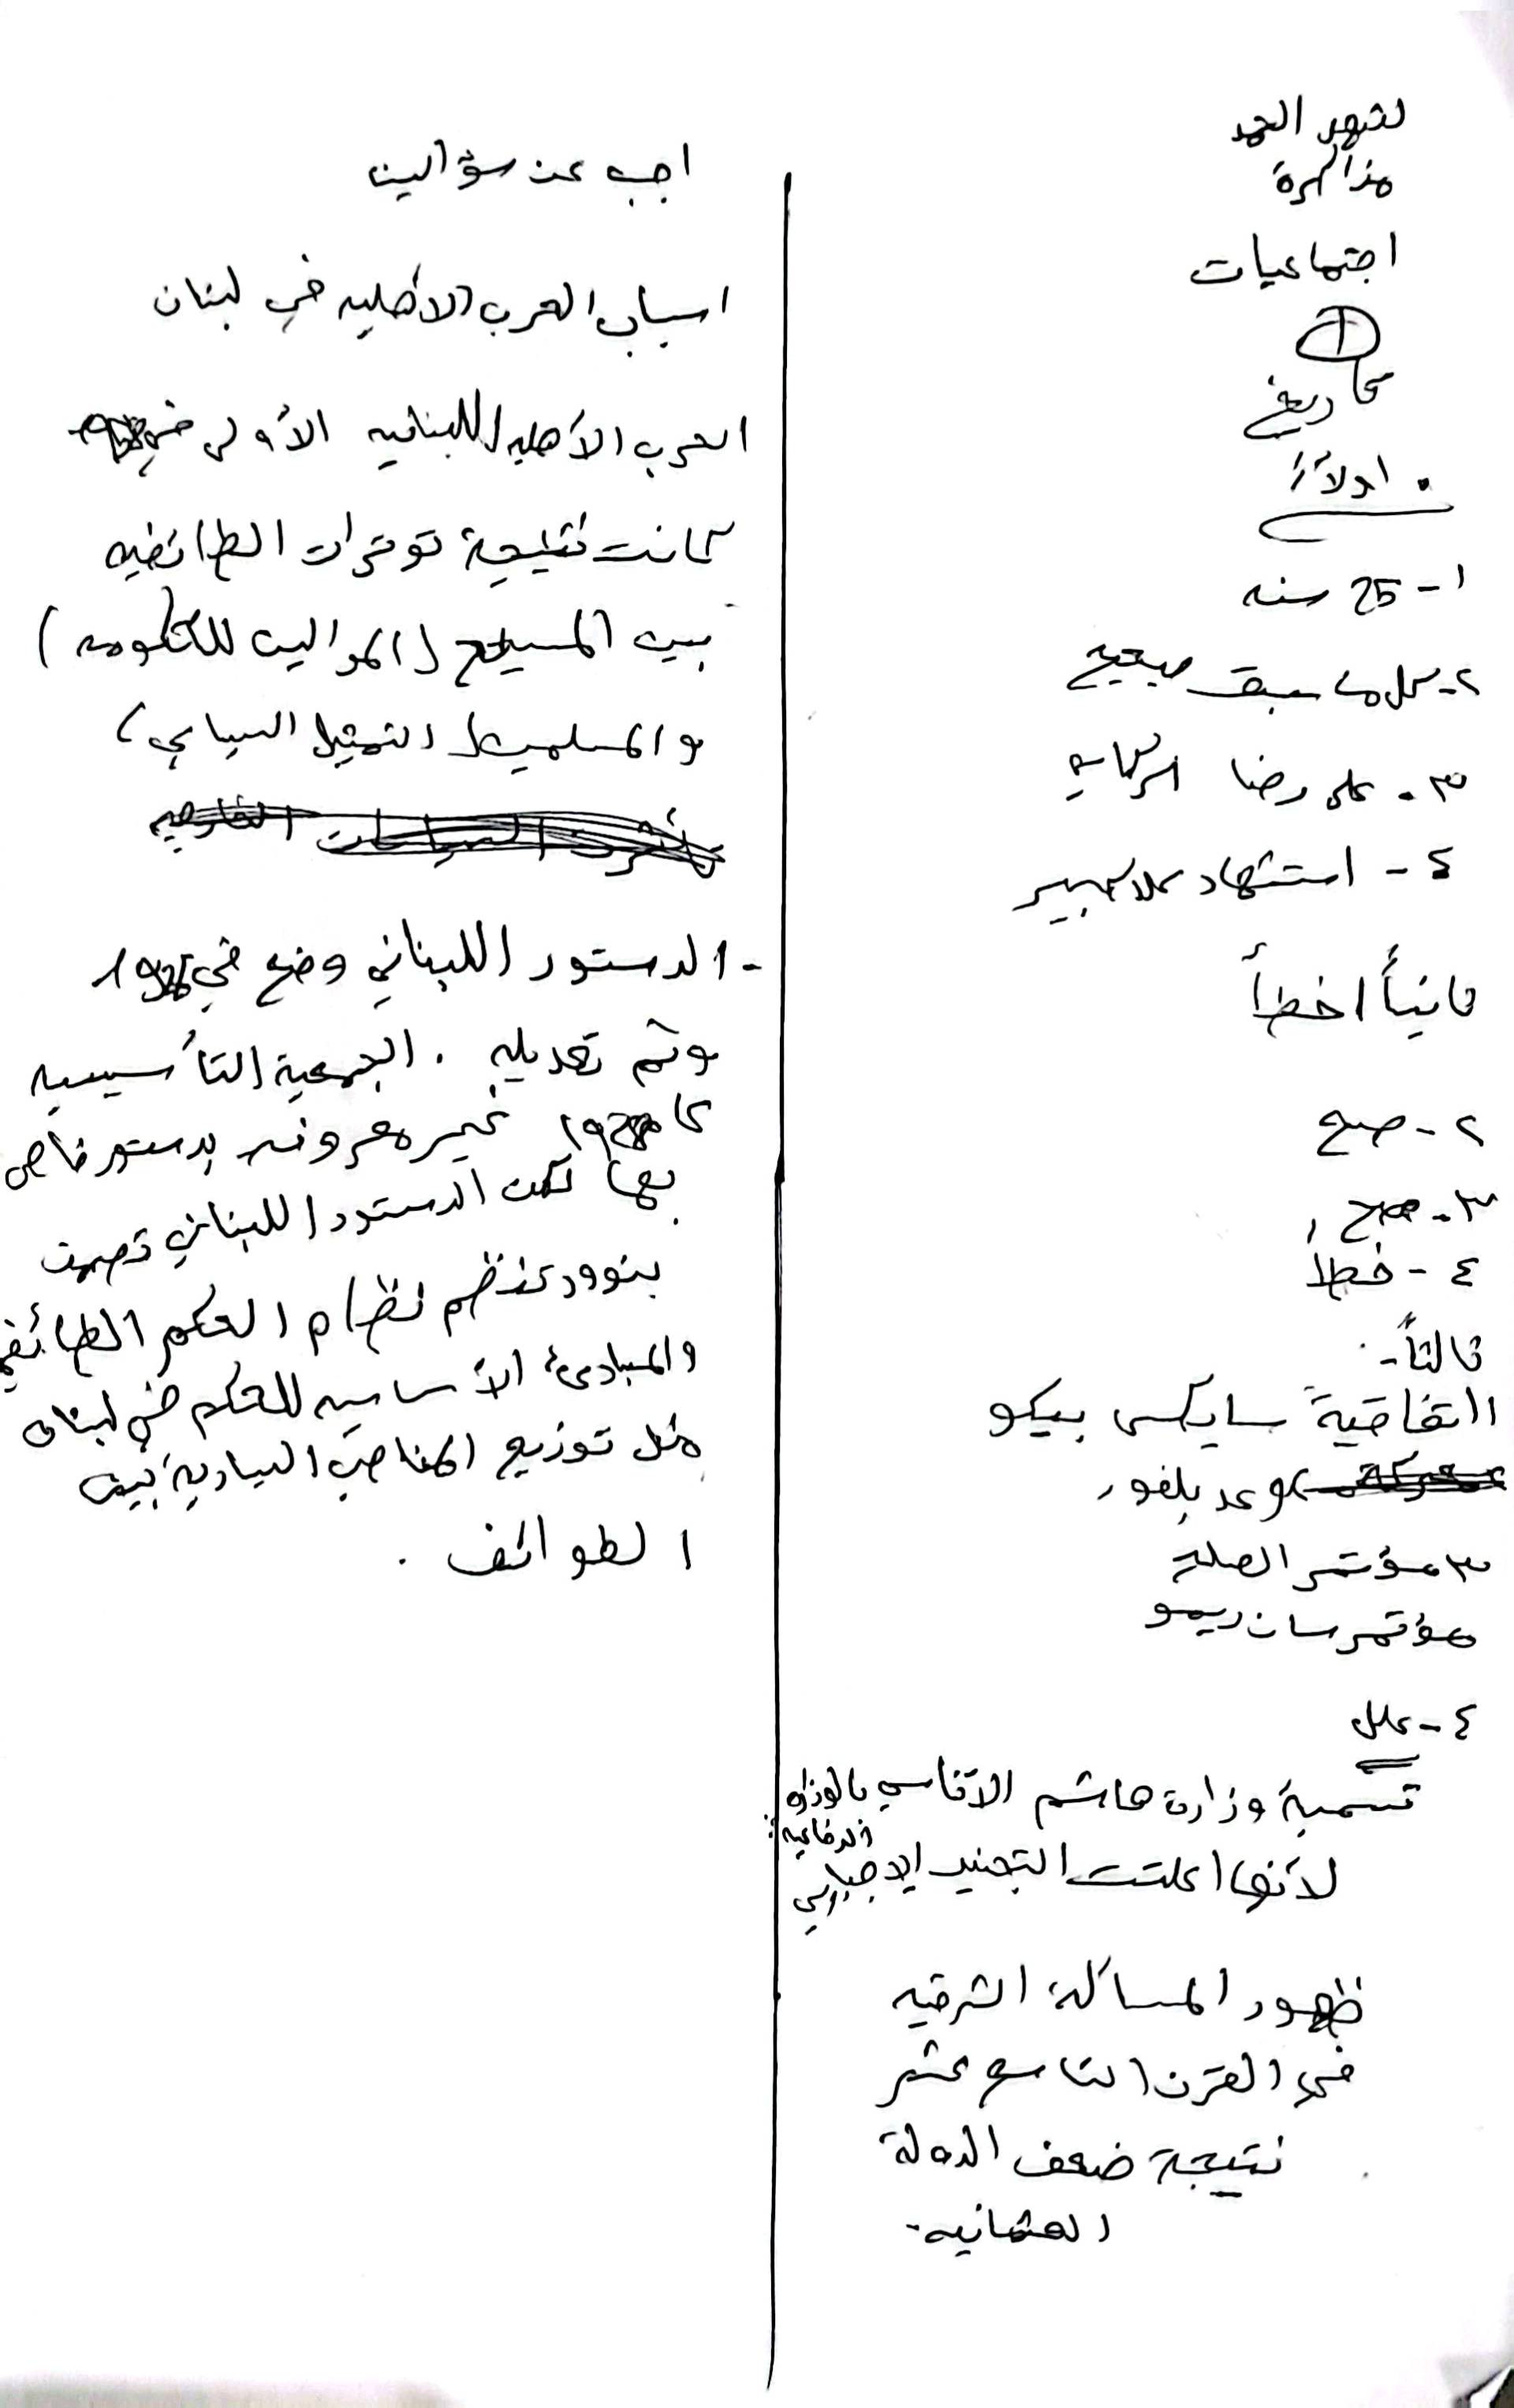 لشهد الحمد
مذاكرة
اجتماعيات
①
تاريخ
. اولاً:
١- 25 سنه
٢- كل ما سبق صحيح
٣- على رضا الركابي
٤- استشهاد عدد كبير
ثانياً خطأ
٢- صح
٣- صح
٤- خطأ
ثالثاً-
١ اتفاقية سايكس بيكو
وعد بلفور
٣- مؤتمر الصلح
مؤتمر سان ريمو
٤- علل
تسمية وزارة هاشم الاتاسي بالوزاره
الدفاعيه:
لأنها اعلنت التجنيد الاجباري
ظهور المسالة الشرقيه
في القرن التاسع عشر
نتيجة ضعف الدولة
العثمانيه.
اجب عن سؤالين
اسباب الحرب الاهليه في لبنان
الحرب الأهليه اللبنانيه الأولى في
كانت نتيجة توترات الطائفيه
بين المسيح (الموالين للحكومه)
والمسلمين (التمثيل السياسي)
- الدستور اللبناني وضع في
وتم تعديله . الجمعية التأسيسيه
عام غير معروفه بدستور خاص
بها لكن الدستور اللبناني تضمن
بنوود تنظم نظام الحكم الطائفي
والمبادىء الأساسيه للحكم في لبنان
مثل توزيع المناصب السيادية بين
الطوائف .